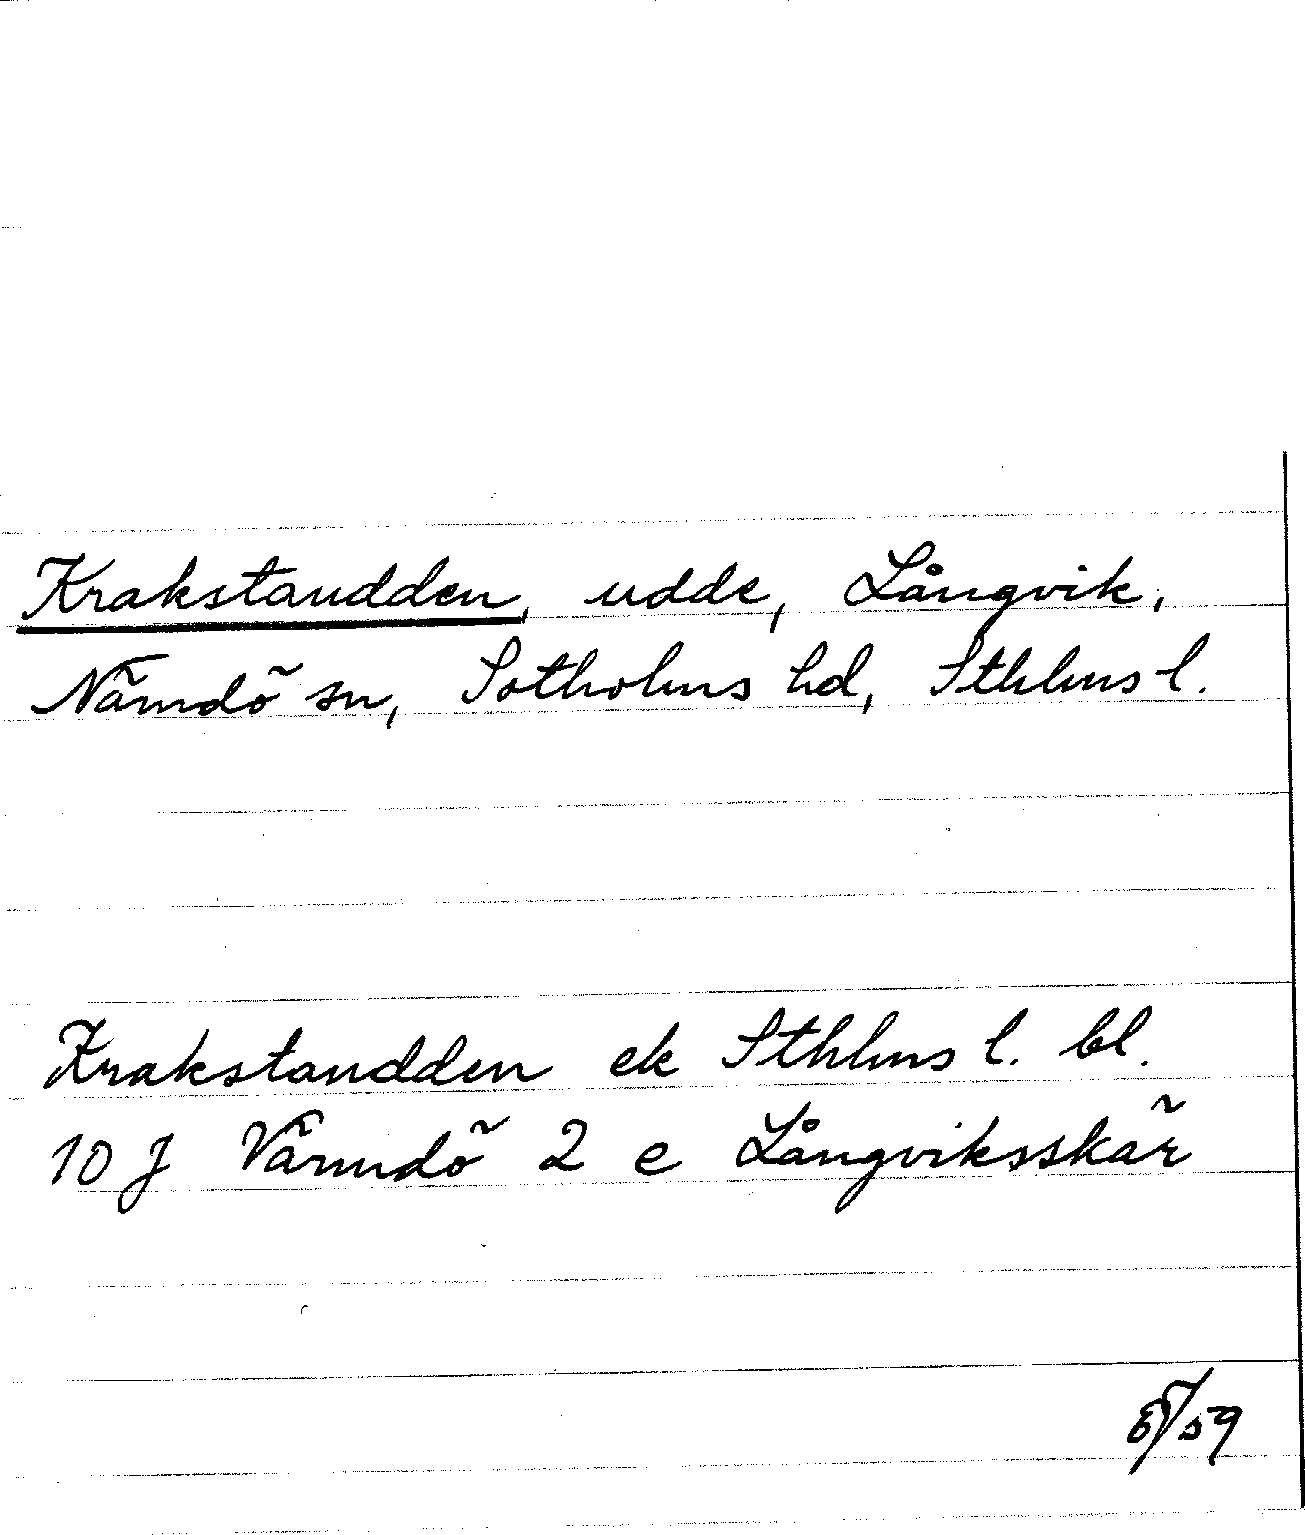 Krakstaudden, udde, Långvik,
Nämdö sn, Sotholms hd, Sthlms l.
Krakstaudden ek Sthlms l. bl.
10 J Värmdö 2 e Långviksskär
/59